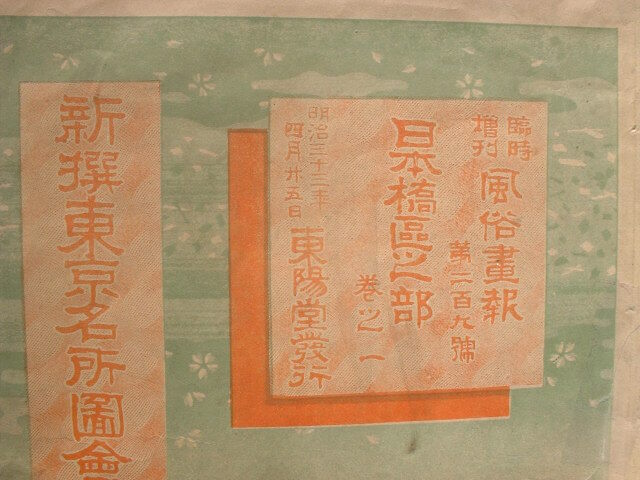 臨時
增刊
風俗畫報
第二百九號
日本橋區之部
卷之一
明治三十三年
四月廿五日
東陽堂發行
新撰東京名所圖會